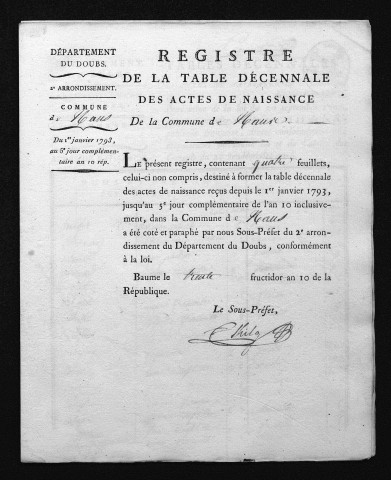 DÉPARTEMENT
DU DOUBS.
2e ARRONDISSEMENT.
COMMUNE
de
Du 1er janvier 1793,
au 5e jour complémen-
taire an 10 rép.
REGISTRE
DE LA TABLE DÉCENNALE
DES ACTES DE NAISSANCE
De la Commune de
LE présent registre, contenant quatre feuillets,
celui-ci non compris, destiné à former la table décennale
des actes de naissance reçus depuis le 1er janvier 1793,
jusqu'au 5e jour complémentaire de l'an 10 inclusive-
ment, dans la Commune de
a été coté et paraphé par nous Sous-Préfet du 2e arron-
dissement du Département du Doubs, conformément
à la loi.
Baume le trente fructidor an 10 de la
République.
Le Sous-Préfet,